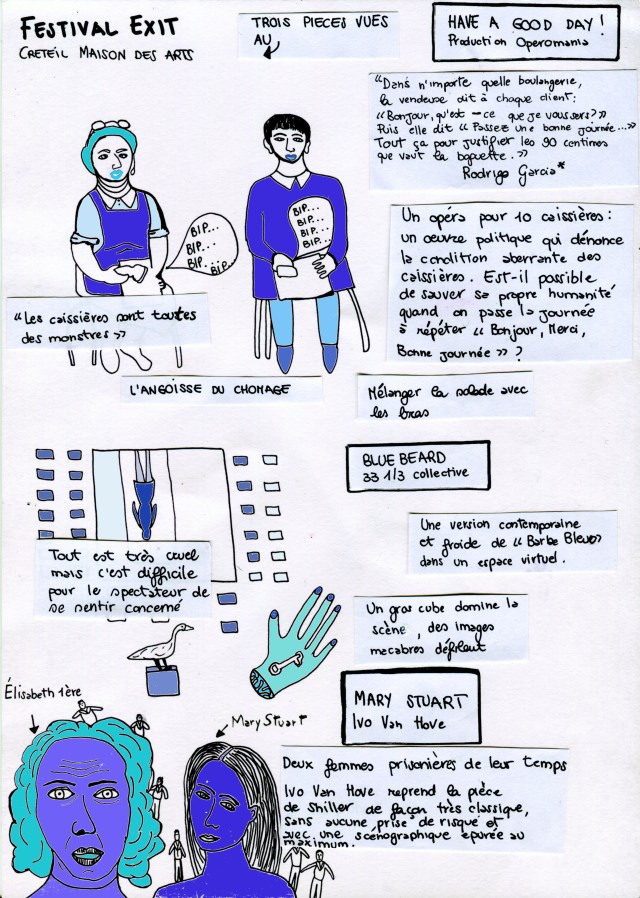 FESTIVAL EXIT
CRETEIL MAISON DES ARTS
TROIS PIECES VUES
AU
HAVE A GOOD DAY !
Production Operomania
"Dans n'importe quelle boulangerie,
la vendeuse dit à chaque client:
"Bonjour, qu'est-ce que je vous sers?»
Puis elle dit «Passez une bonne journée...»
Tout ça pour justifier les 90 centimes
que vaut la baguette.»
Rodrigo Garcia*
BIP...
BIP...
BIP...
BIP...
BIP...
BIP...
BIP...
BIP...
Un opéra pour 10 caissières :
un oeuvre politique qui dénonce
la condition aberrante des
caissières. Est-il possible
de sauver sa propre humanité
quand on passe la journée
à répéter « Bonjour, Merci,
Bonne journée » ?
"Les caissières sont toutes
des monstres»
L'ANGOISSE DU CHOMAGE
Mélanger la salade avec
les bras
BLUE BEARD
33 1/3 collective
Une version contemporaine
et froide de «Barbe Bleue»
dans un espace virtuel.
Tout est très cruel
mais c'est difficile
pour le spectateur de
se sentir concerné
Un gros cube domine la
scène, des images
macabres défilent
MARY STUART
Ivo Van Hove
Élisabeth 1ère
Mary Stuart
Deux femmes prisonières de leur temps
Ivo Van Hove reprend la pièce
de Shiller de façon très classique,
sans aucune prise de risque et
avec une scénographique épurée au
maximum.